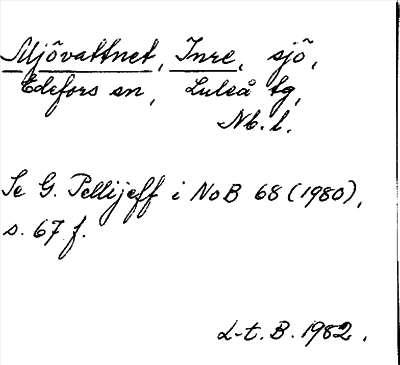 Mjövattnet, Inre, sjö,
Edefors sn, Luleå tg,
Nb. l.
Se G. Pellijeff i NoB 68 (1980),
s. 67 f.
L-t. B. 1982.